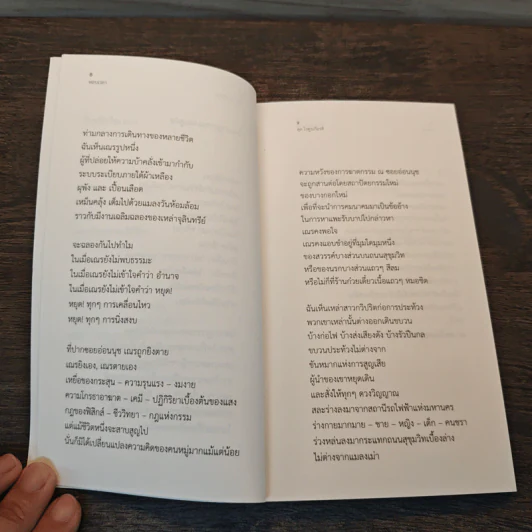 ท่ามกลางการเดินทางของหลายชีวิต
ฉันเห็นเณรรูปหนึ่ง
ผู้ที่ปล่อยให้ความบ้าคลั่งเข้ามากำกับ
ระบบระเบียบภายใต้ผ้าเหลือง
ผุพัง และ เปื้อนเลือด
เหม็นคลุ้ง เต็มไปด้วยแมลงวันห้อมล้อม
ราวกับมีงานเฉลิมฉลองของเหล่าจุลินทรีย์
จะฉลองกันไปทำไม
ในเมื่อเณรยังไม่พบธรรมะ
ในเมื่อเณรยังไม่เข้าใจคำว่า อำนาจ
ในเมื่อเณรยังไม่เข้าใจคำว่า หยุด!
หยุด! ทุกๆ การเคลื่อนไหว
หยุด! ทุกๆ การนิ่งสงบ
ที่ปากซอยอ่อนนุช เณรถูกยิงตาย
เณรยิงเอง, เณรตายเอง
เหยื่อของกระสุน – ความรุนแรง – งมงาย
ความโกรธาอาฆาต – เคมี – ปฏิกิริยาเบื้องต้นของแสง
กฎของฟิสิกส์ – ชีววิทยา – กฎแห่งกรรม
แต่แม้ชีวิตหนึ่งจะสาบสูญไป
นั่นก็มิได้เปลี่ยนแปลงความคิดของคนหมู่มากแม้แต่น้อย
ความหวังของการฆาตกรรม ณ ซอยอ่อนนุช
จะถูกสานต่อโดยสถาปัตยกรรมใหม่
ของบางกอกใหม่
เพื่อที่จะนำการคมนาคมมาเป็นข้ออ้าง
ในการหาแพะรับบาปไปกล่าวหา
เณรคงพอใจ
เณรคงแอบขำอยู่ที่มุมใดมุมหนึ่ง
ของสวรรค์บางส่วนบนถนนสุขุมวิท
หรือของนรกบางส่วนแถวๆ สีลม
หรือไม่ก็ที่ร้านก๋วยเตี๋ยวเนื้อแถวๆ หมอชิต
ฉันเห็นเหล่าสาวกวิปริตก่อการประท้วง
พวกเขาเหล่านั้นต่างออกเดินขบวน
บ้างก่อไฟ บ้างส่งเสียงดัง บ้างรัวปืนกล
ขบวนประท้วงไม่ต่างจาก
ขันหมากแห่งการสูญเสีย
ผู้นำของเขาหยุดเดิน
และสั่งให้ทุกๆ ดวงวิญญาณ
สละร่างลงมาจากสถานีรถไฟฟ้าแห่งมหานคร
ร่างกายมากมาย – ชาย – หญิง – เด็ก – คนชรา
ร่วงหล่นลงมากระแทกถนนสุขุมวิทเบื้องล่าง
ไม่ต่างจากแมลงเม่า